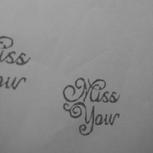 iss
ou
Miss
You